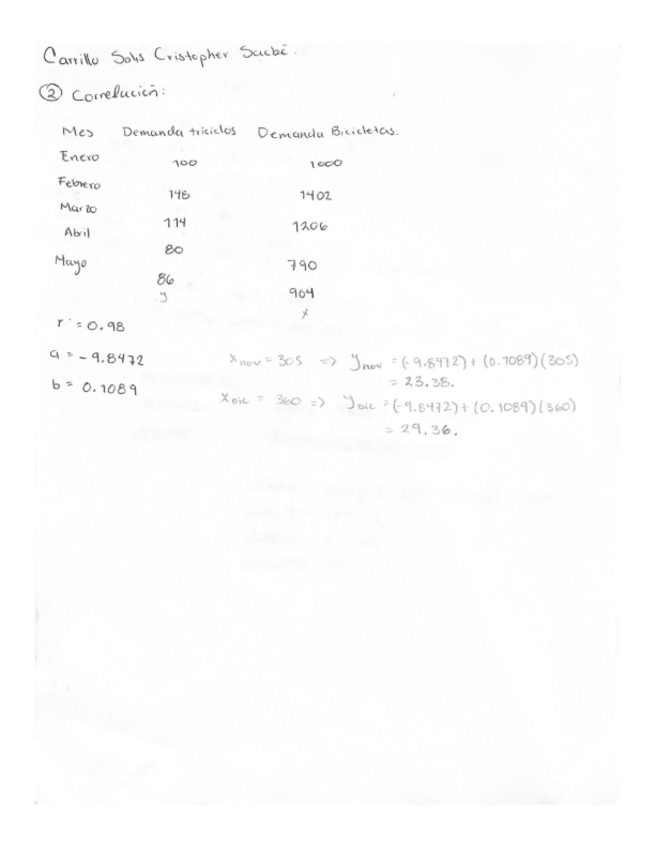 Carrillo Solis Cristopher Sacbé.
② Correlación:
Mes Demanda triciclos Demanda Bicicletas.
Enero 100 1000
Febrero 148 1402
Marzo 114 1206
Abril 80 790
Mayo 86 964
y x
r = 0.98
a = -9.8472
b = 0.1089
x nov = 305 => y nov = (-9.8472) + (0.1089)(305)
= 23.38.
x Dic = 360 => y Dic = (-9.8472) + (0.1089)(360)
= 29.36.